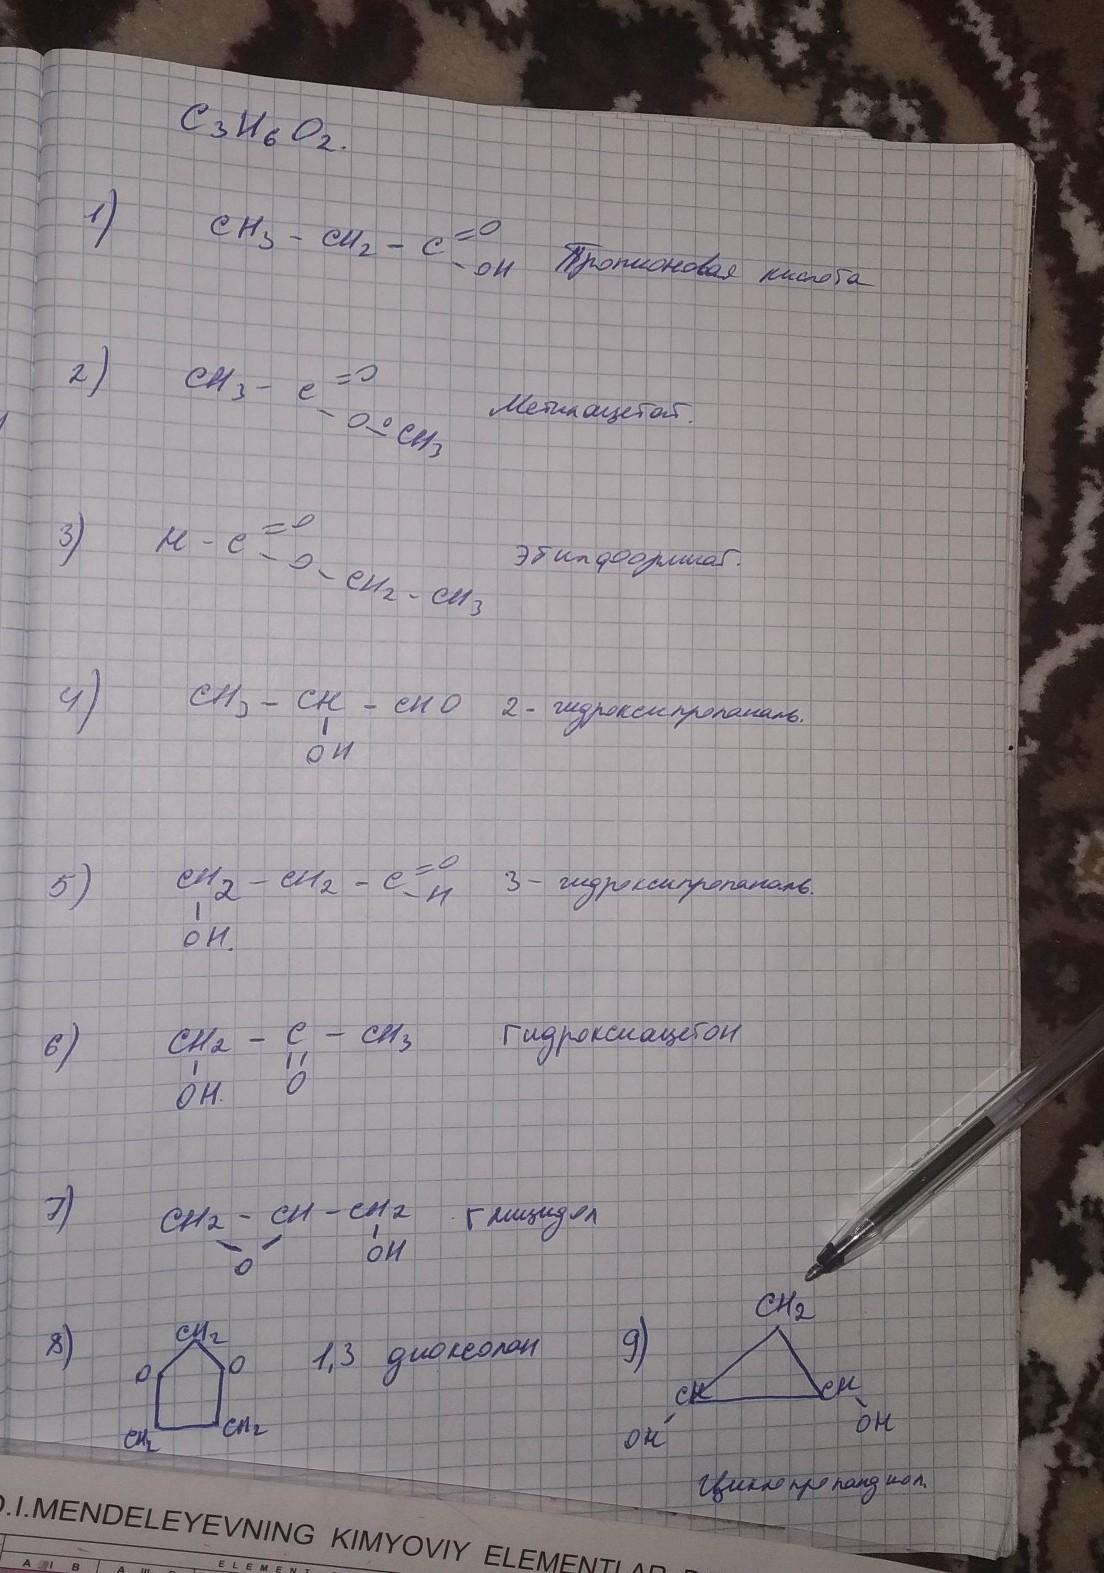 C3H6O2.
1) CH3 - CH2 - C =O -OH Пропионовая кислота
2) CH3 - C =O - O - CH3 Метилацетат.
3) H - C =O - O - CH2 - CH3 этилформиат.
4) CH3 - CH - CHO 2 - гидроксипропаналь.
OH
5) CH2 - CH2 - C =O - H 3 - гидроксипропаналь.
OH.
6) CH2 - C - CH3 Гидроксиацетон
OH. O
7) CH2 - CH - CH2 Глицидол
O OH
8) CH2 O O CH2 CH2 1,3 диоксолан
9) CH2 CH CH OH OH
Циклопропандиол.
D.I.MENDELEYEVNING KIMYOVIY ELEMENTLAR
A I B A III ELEMENT